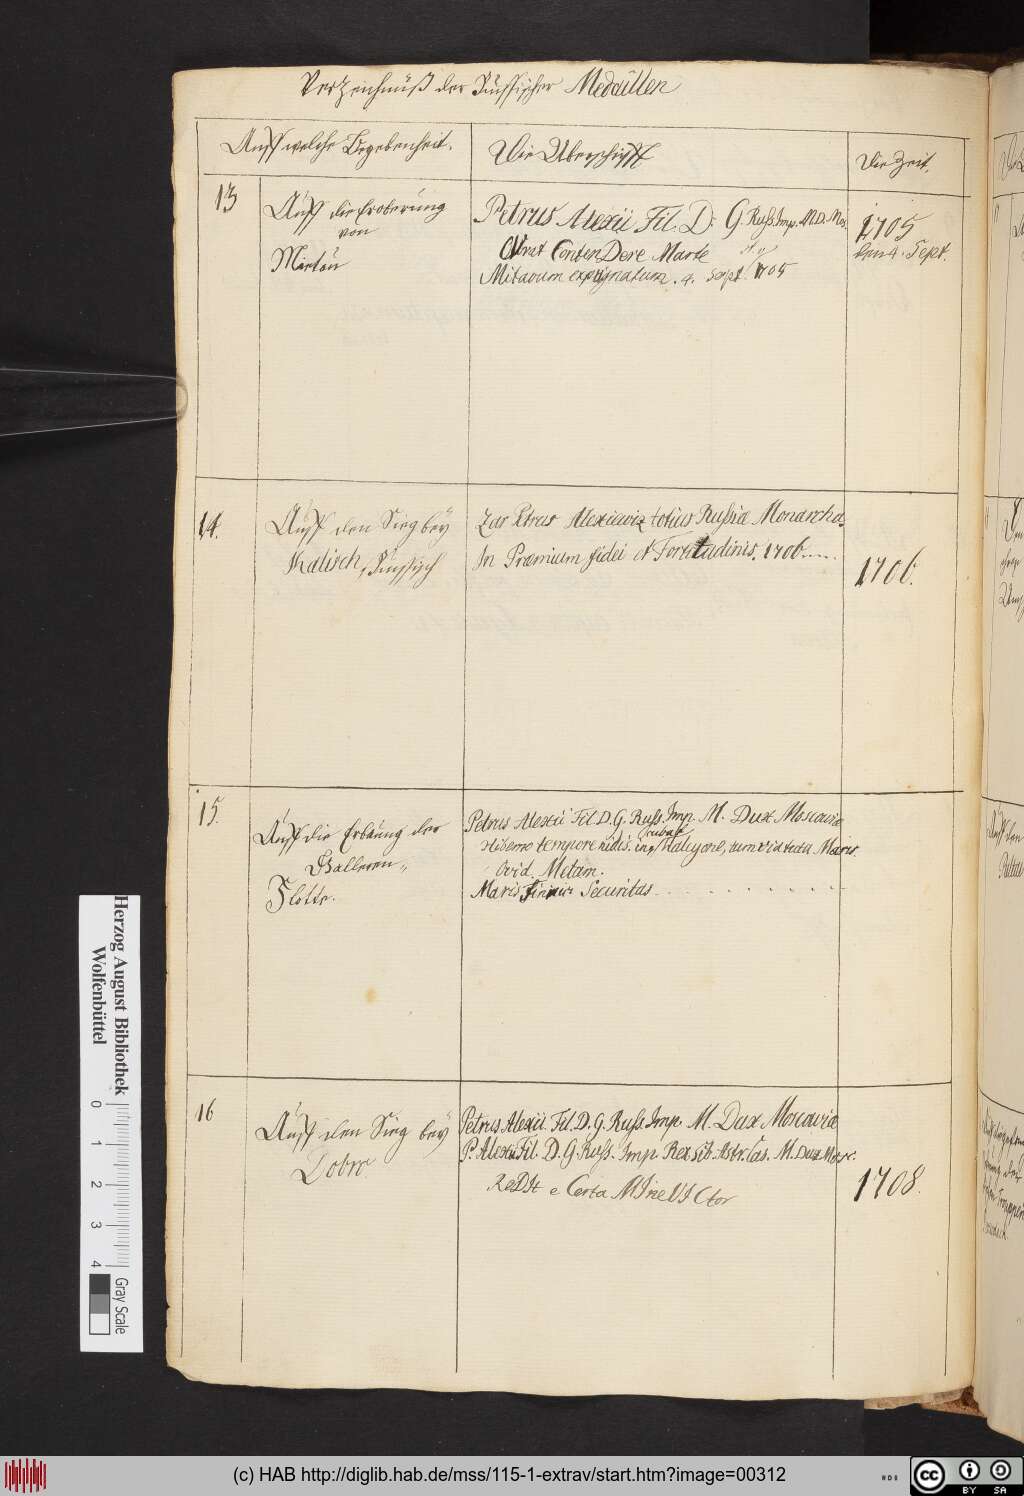 Verzeichnüß der Rüssischer Medaillen
Auff welche Begebenheit.
Die Uberschrifft
Die Zeit.
13
Auff die Eroberüng
von
Mietau
Petrus Alexii Fil. D. G. Russ. Imp. M.D. Mos.
Conten Dere Marte
Mitavum expugnatum. 4. Sept. 1705
1705
den 4. Sept.
14.
Auff den Sieg bey
Kalisch, Rüssisch
Zar Petrus Alexiewiz totius Russiæ Monarcha.
In Præmium fidei et Fortitudinis. 1706.....
1706.
15.
Auff die Erbauung der
Galleeren
Flotte.
Petrus Alexii Fil. D. G. Russ. Imp. M. Dux Moscoviæ
Hiberno tempore nidis incubat Halcyone, tum via tuta Maris.
Ovid. Metam.
Maris Securitas
16
Auff den Sieg bey
Dobre
Petrus Alexii Fil. D. G. Russ. Imp. M. Dux Moscoviæ
P. Alexii Fil. D. G. Russ. Imp Rex sib. Astr. Cas. M. Dux Mosc.
ReDIt e CertaMIne VICtor
1708.
Herzog August Bibliothek
Wolfenbüttel
0 1 2 3 4
Gray Scale
(c) HAB http://diglib.hab.de/mss/115-1-extrav/start.htm?image=00312
cc BY SA